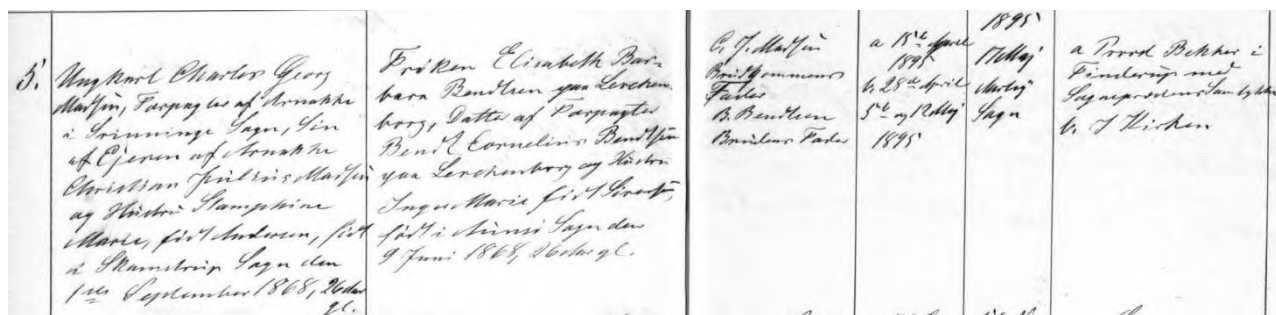 5.
Ungkarl Charles Georg
Madsen, Forpagter af Arnakke
i Sørup Sogn, Søn
af Ejeren af Arnakke
Christian Julius Madsen
og Hustru
Marie, født Andersen, født
i Skamstrup Sogn den
1ste September 1868, 26 Aar
gl.
Frøken Elisabeth Bar-
bara Bendtsen paa Lerchen-
borg, Datter af Forpagter
Bendt Cornelius Bendtsen
paa Lerchenborg og Hustru
Inger Marie født
født i Sogn den
9 Juni 1868, 26 Aar gl.
C. J. Madsen
Brudgommens
Fader
B. Bendtsen
Brudens Fader
a April
1895
b. 28de April
5te og 12 Maj
1895
1895
17 Maj
Sogn
a Provst Bekker i
Finderup med
Sognepræstens Samtykke
b. I Kirken